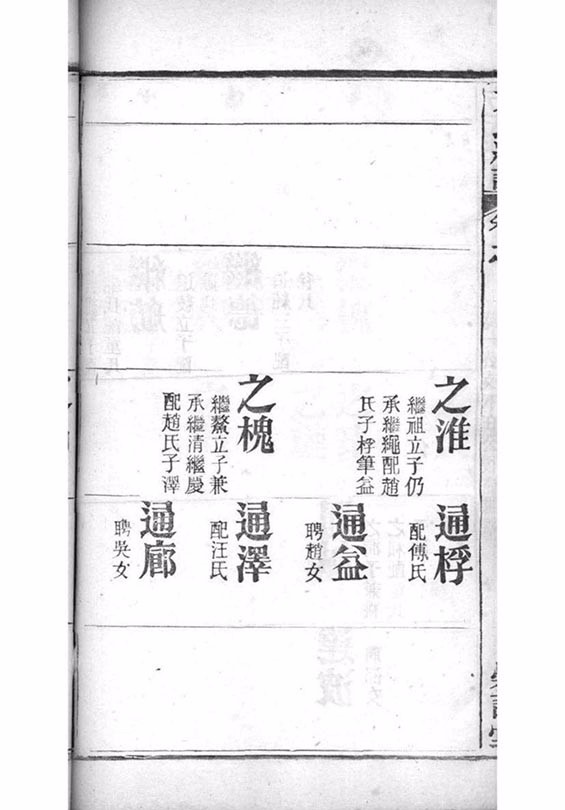 之淮
繼祖立子仍
承繼繩配趙
氏子桴筆益
之槐
繼鰲立子兼
承繼清繼慶
配趙氏子澤
通桴
配傅氏
通益
聘趙女
通澤
配汪氏
通廊
聘吳女